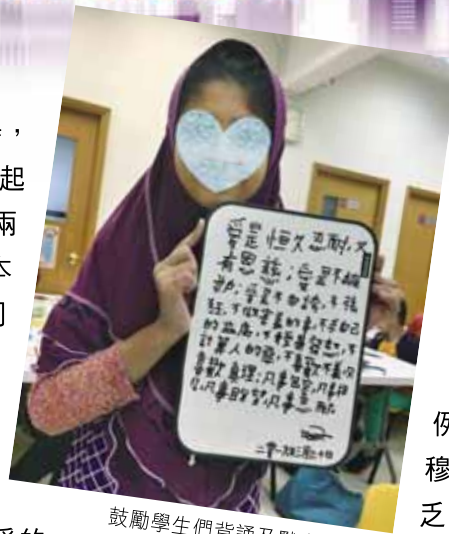 起
兩
愛是恒久忍耐,又
有恩慈;愛是不嫉
妒;愛是不自誇,不張
狂,不做害羞的事,不求自己
的益處,不輕易發怒,不
計算人的惡,不喜歡不義,只
喜歡真理;凡事包容,凡事相
信,凡事盼望,凡事忍耐
鼓勵學生們背誦及
的
例
穆
乏